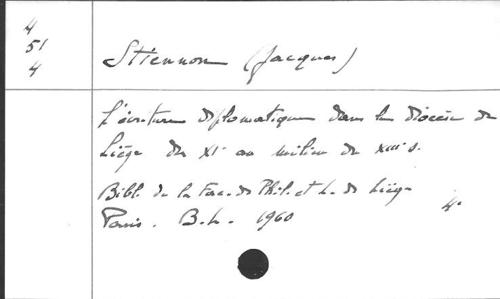 4
51
4
Stiennon (Jacques)
L'écriture diplomatique dans le diocèse de
Liège du XIe au milieu du XIIIe s.
Bibl. de la Fac. de Phil. et L. de Liège
Paris. B.L. 1960
4°